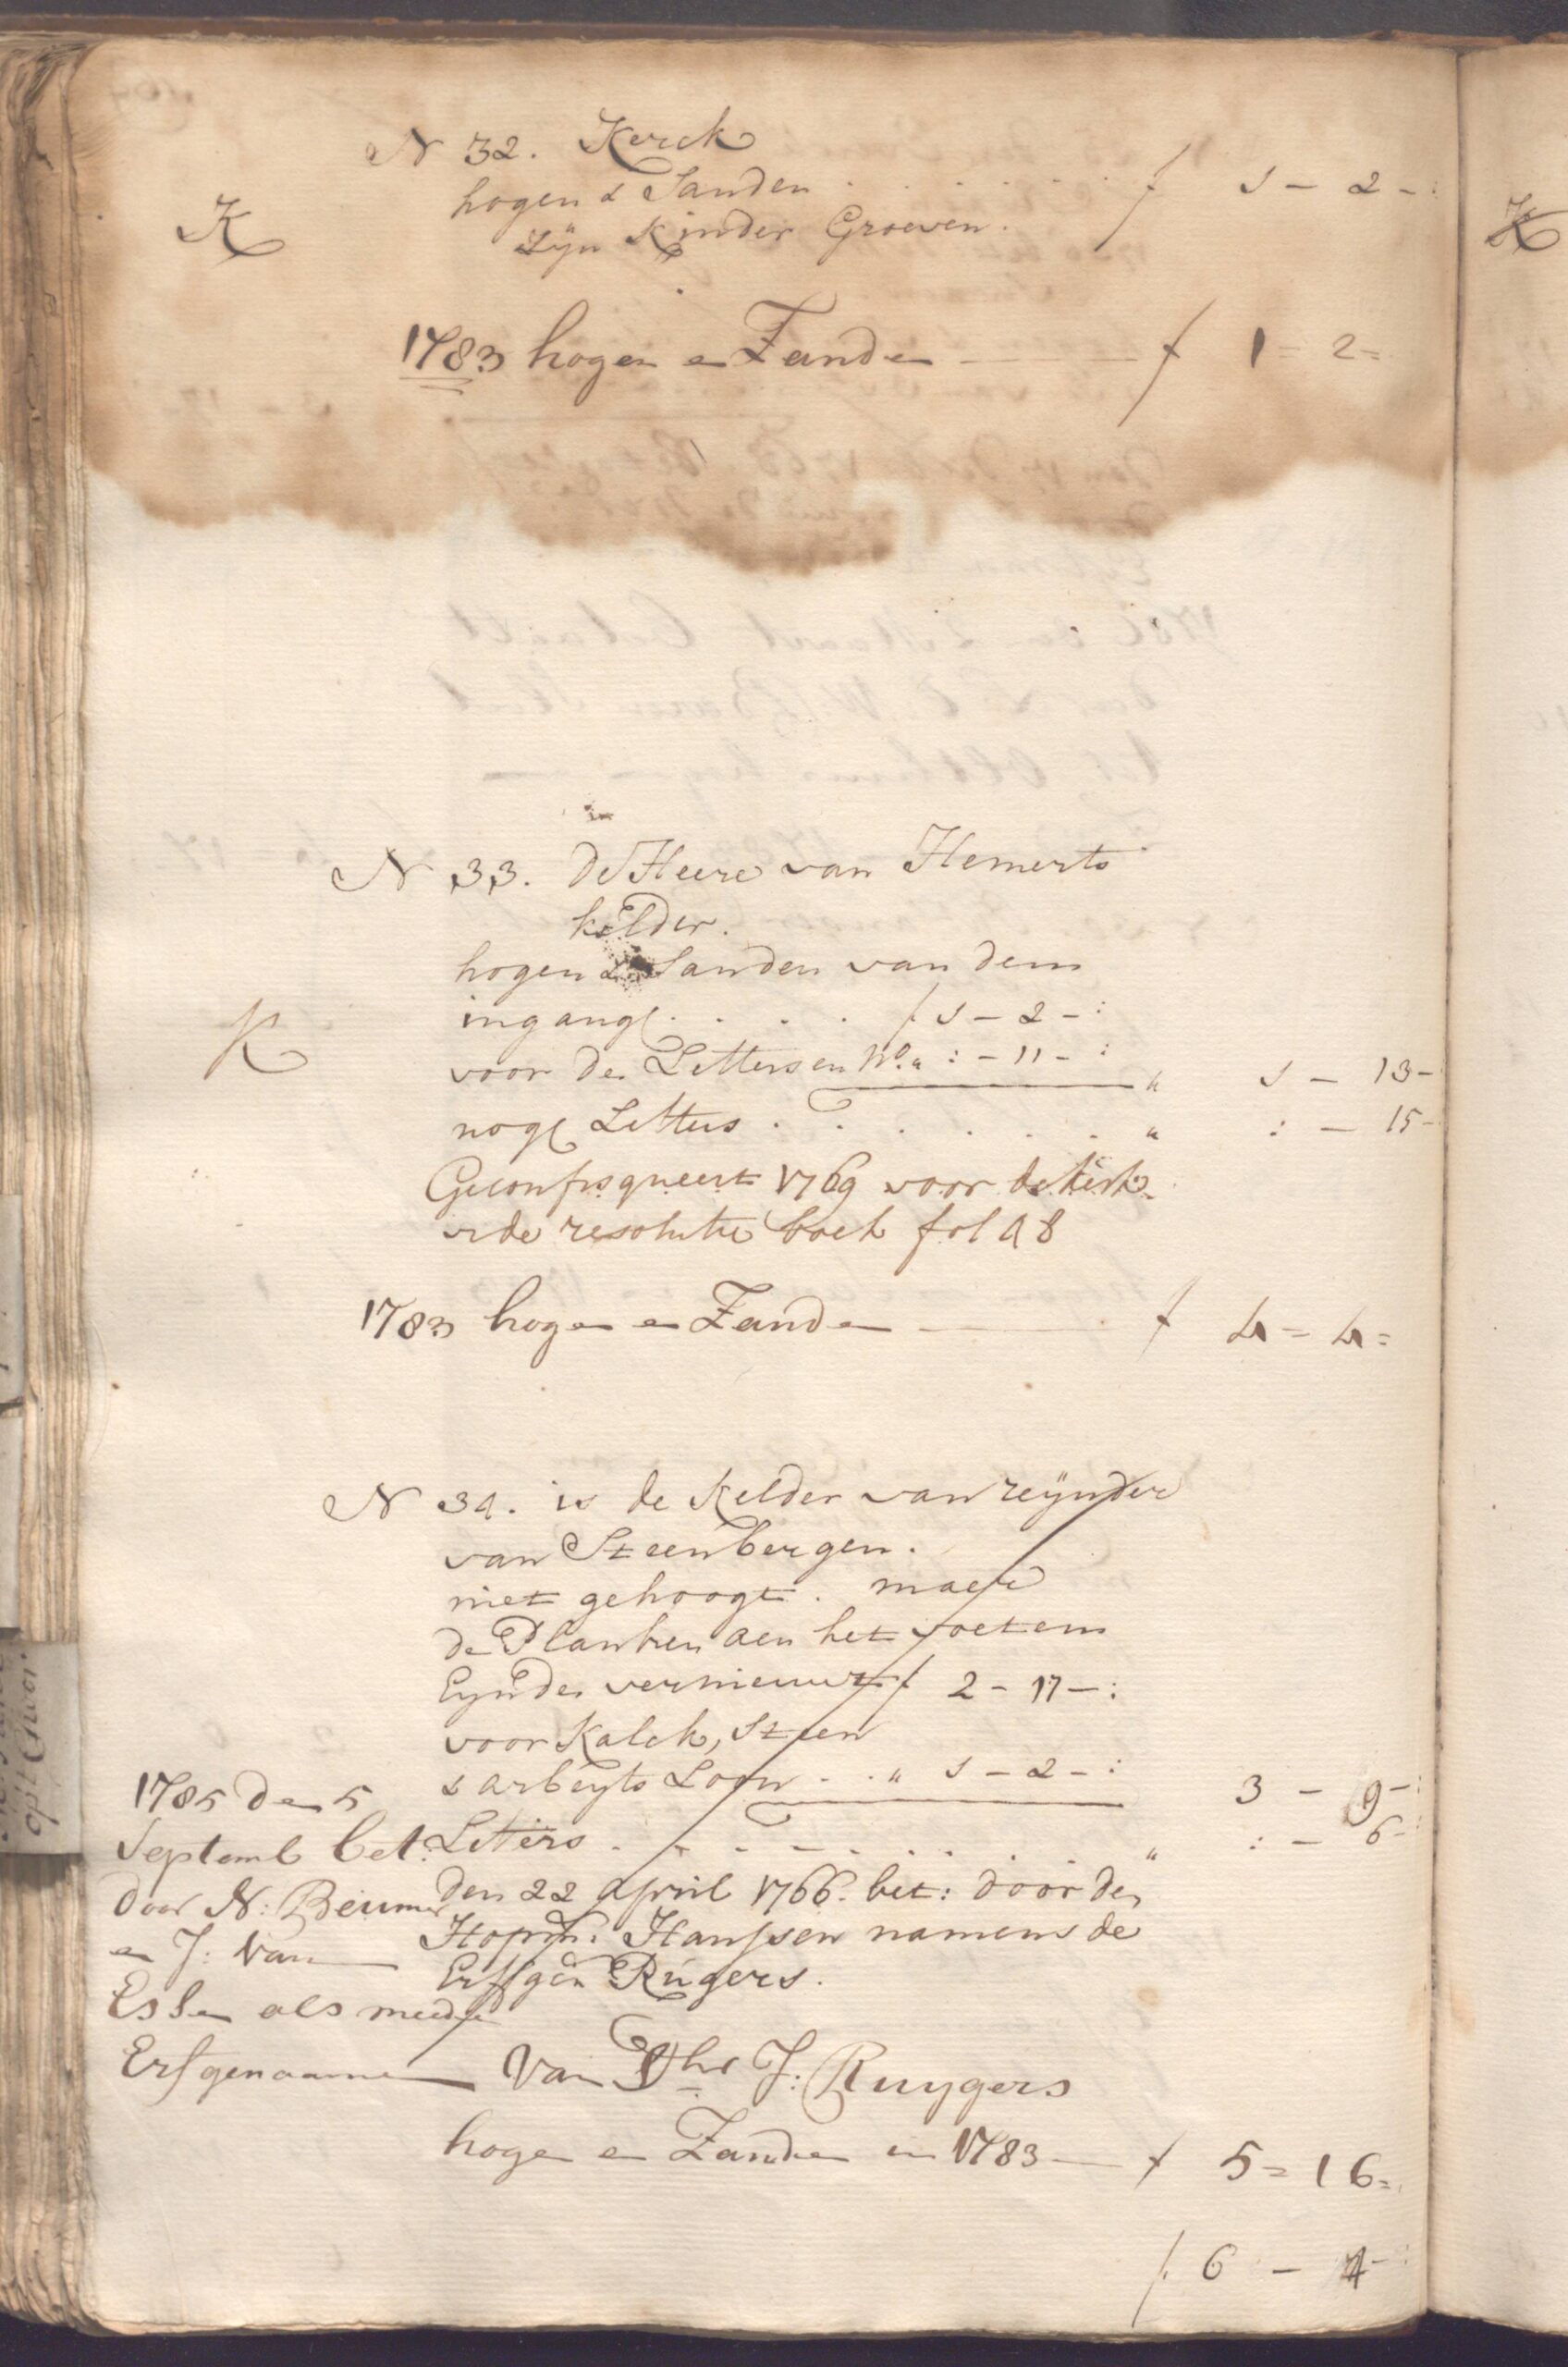 N 32. Kerck
hogen & Sanden . . . . . . f 1 - 2 - :
K
Zÿn Kinder Groeven.
1783 hogen en Zanden — f 1 = 2 =
N 33. de Heere van Hemerts
kelder.
hogen & Sanden van den
ingang . . . . f 1 - 2 - :
K
voor de Letters en No. „ : - 11 - : „ 1 - 13 -
nog Letters . . . . . . „ : - 15 -
Geconfisqueert 1769 voor de kerk
vide resolutie boek fol 48
1783 hogen en Zanden — f 4 = 4 =
N 34. is de Kelder van reÿnder
van Steenbergen.
niet gehoogt. maer
de Planken aen het voeten
Eynde vernieuwt f 2 - 17 - :
voor Kalck, Steen
& arbeyts Loon . . „ 1 - 2 - : 3 - 9 - :
Letters . . . . . . . . „ : - 6 - :
den 22 april 1766. bet: door de
Hopm. Hanssen namens de
Erffgen Rugers.
1785 den 5
Septemb bet:
door N: Beumer
en J: van
Essen als meede
Erfgenaamen van Dhr J: Ruygers
hogen en Zanden in 1783 — f 5 = 16 =
f. 6 - 4 - :
K